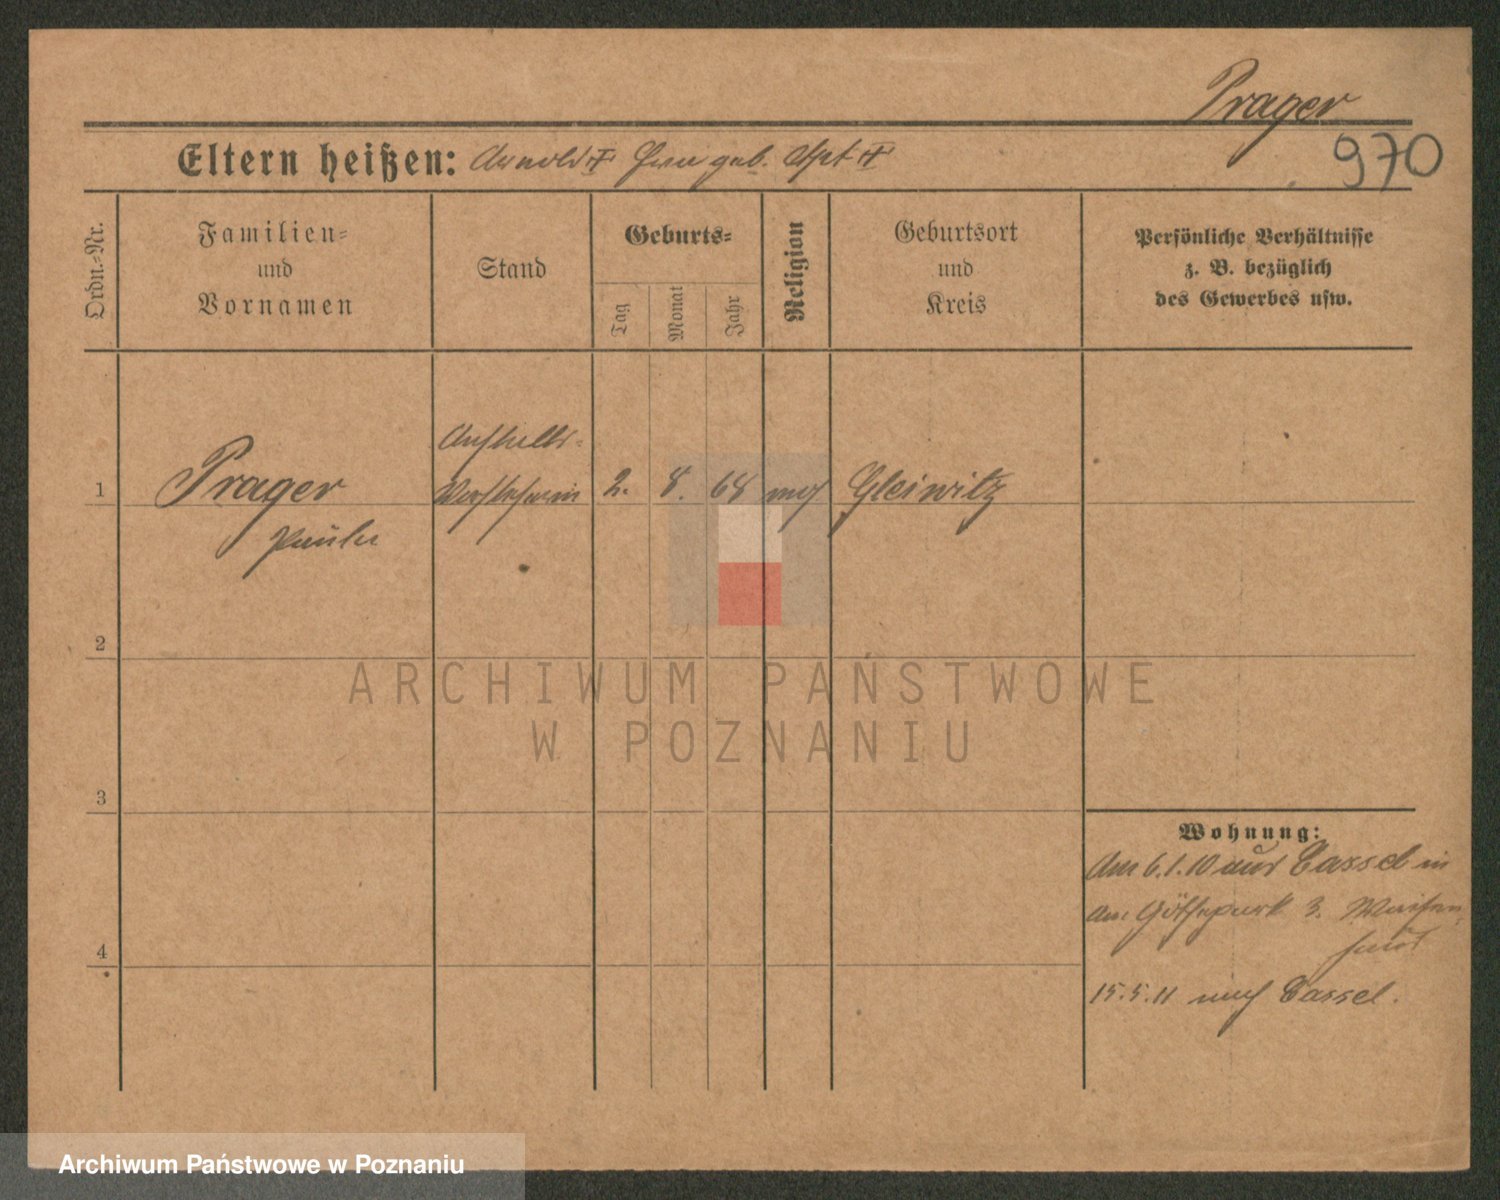 Prager
970
Eltern heißen: Arnold geb.
Ordn.-Nr.
Familien-
und
Vornamen
Stand
Geburts-
Tag
Monat
Jahr
Religion
Geburtsort
und
Kreis
Persönliche Verhältnisse
z. B. bezüglich
des Gewerbes usw.
Anstalts-
1 Prager Vorsteherin 2. 8. 68 mos Gleiwitz
Paula
2
3
4
Wohnung:
Am 6.1.10 aus Cassel in
Am Göthepark 3. Waisen-
haus
15.5.11 nach Cassel.
ARCHIWUM PAŃSTWOWE
W POZNANIU
Archiwum Państwowe w Poznaniu